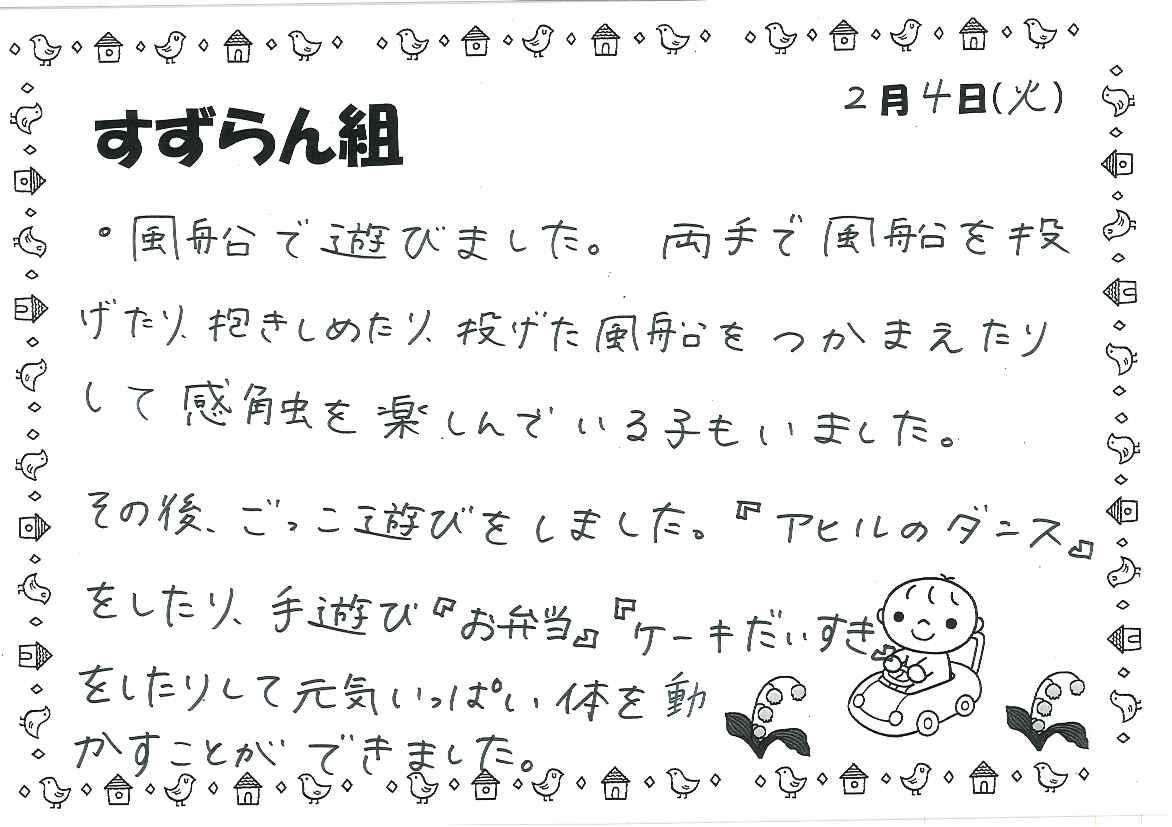 2月4日(火)
すずらん組
・風船で遊びました。 両手で風船を投
げたり、抱きしめたり、投げた風船をつかまえたり
して感触を楽しんでいる子もいました。
その後、ごっこ遊びをしました。『アヒルのダンス』
をしたり、手遊び『お弁当』『ケーキだいすき』
をしたりして元気いっぱい体を動
かすことができました。